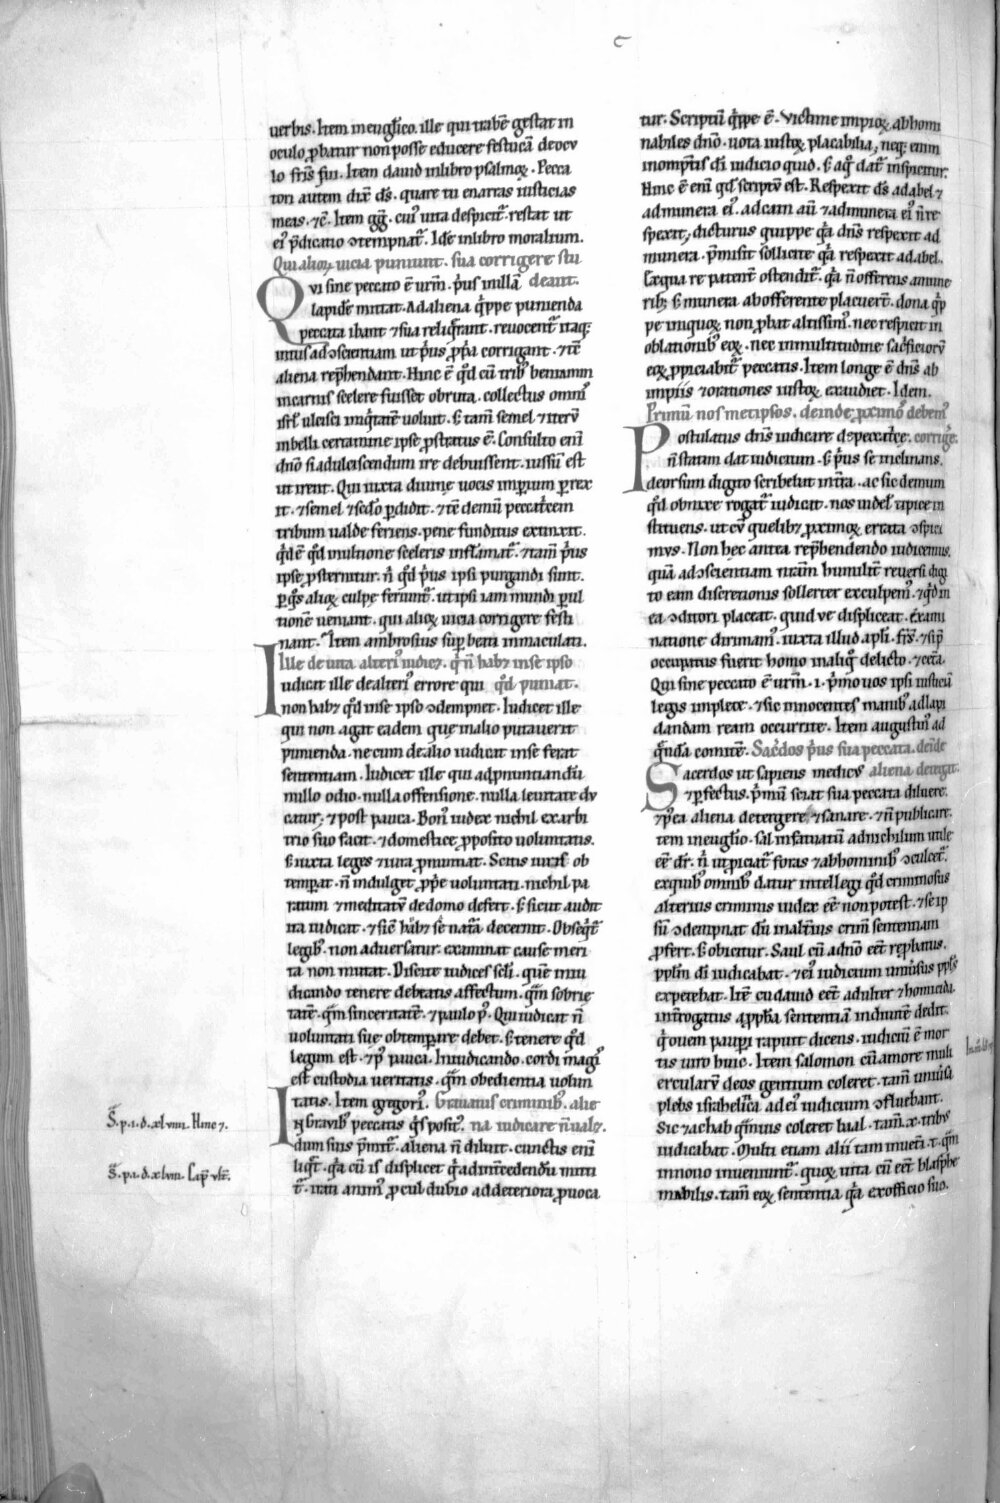 uerbis. Item in eug̅lico. ille qui trabē gestat in
oculo ꝓbatur non posse educere festucā de ocu
lo fris̅ sui. Item dauid in libro psalmoꝝ. Pecca
tori autem dix̅ ds̅. quare tu enarras iusticias
meas. ⁊c̅. Item gg̅. cui᷒ uita despicit᷑. restat ut
ei᷒ p̅dicatio ↄtempnat᷑. Idē in libro moralium.
Qui alioꝝ uicia puniunt. sua corrigere stu
deant.
Qvi sine peccato ē urm̅. p͛us in illā
lapidē mittat. Ad aliena q͛ppe punienda
peccata ibant ⁊ sua reliq͛rant. reuocent᷑ itaq;
intus ad ↄscientiam ut p͛us ꝓp͛a corrigant. ⁊ tc̅
aliena rep̅hendant. Hinc ē qd̅ cū trib᷒ beniamin
in carnis scelere fuisset obruta. collectus omnis
isrl̅ ulcisci iniq͛tatē uoluit. s; tam̅ semel ⁊ iterū
in belli certamine ipse ꝓstratus ē. Consulto eni̅
dn̅o si ad ulciscendum ire debuissent. iussū est
ut irent. Qui iuxta diuinę uocis imperium ꝑrex
it. ⁊ semel ⁊ scd̅o ꝑdidit. ⁊ tc̅ demū peccat̅cem
tribum ualde feriens. pene funditus extinxit.
Qd̅ ē qd̅ in ultione sceleris inflāmat᷑. ⁊ tam̅ p͛us
ipse ꝓsternitur. n̅ qd̅ p͛us ipsi purgandi sunt.
ꝑ q͛s alioꝝ culpę feriunt᷑. ut ipsi iam mundi ꝑ ul
tionē ueniant. qui alioꝝ uicia corrigere festi
nant. Item ambrosius sup̅ beati inmaculati.
Ille de uita alteri᷒ iudicꝫ. q͛ n̅ habꝫ in se ipso
Iudicet ille de alteri᷒ errore qui qd̅ puniat.
non habꝫ qd̅ in se ipso ↄdempnet. Iudicet ille
qui non agat eadem que in alio putauerit
punienda. ne cum de alio iudicat in se ferat
sententiam. Iudicet ille qui ad pnuntiandū
nullo odio. nulla offensione. nulla leuitate du
catur; ⁊ post pauca. Bon᷒ iudex nichil ex arbi
trio suo facit. ⁊ domesticę ꝓposito uoluntatis.
s; iuxta leges ⁊ iura ꝓnuntiat. Scitis iuris̅ ob
temꝑat. n̅ indulget ꝓp͛e uoluntati. nichil pa
ratum ⁊ meditatū de domo defert. s; sicut audit
ita iudicat. ⁊ sic̅ habꝫ se̅ nat͛a decernit. Obseq͛t᷑
legib᷒. non aduersatur. examinat cause meri
ta non mutat. Discite iudices scl̅i. quē in iu
dicando tenere debeatis affectum. q̅m sobrie
tatē. q̅m sinceritatē. ⁊ paulo p᷒. Qui iudicat n̅
uoluntati suę obtemꝑare debet. s; tenere qd̅
legum est. ⁊ p᷒ pauca. In iudicando. cordi magi᷒
est custodia ueritatis. q̅m obedientia uolun
tatis. Item gregori᷒. Grauatus criminib᷒. alie
Iƞ brauib᷒ peccatis q͛s posit᷒. na iudicare n̅ ualꝫ.
dum suis p̅mit᷑. aliena n̅ diluit. cunctis eni̅
liq͛t. q͛a cū is displicet q͛ ad int̅cedendū mitti
t᷑. irati anim᷒ ꝓcul dubio ad deteriora ꝓuoca
tur. Scriptū q͛ppe ē. Victime impioꝝ abhomi
nabiles dn̅o. uota iustoꝝ placabilia; neq; enim
in omp̅tis di̅ iudicio quid. s; a q͛ dat᷑ inspicitur.
Hinc ē eni̅ qd̅ scriptū est. Respexit ds̅ ad abel ⁊
ad munera ei᷒. ad cain au̅ ⁊ ad munera ei᷒ n̅ re
spexit; dicturus quippe q͛a dn̅s respexit ad
munera. p̅misit sollicite q͛a respexit ad abel.
Ex qua re patent᷑ ostendit᷑. q͛a n̅ offerens a mune
rib; s; munera ab offerente placuer̅t. dona q͛p
pe iniquoꝝ non ꝓbat altissim᷒. nec respicit in
oblationib᷒ eoꝝ. nec in multitudine sac͛ficioꝝ
eoꝝ ꝓpiciabit᷑ peccatis. Item longe ē dn̅s ab
impiis ⁊ orationes iustoꝝ exaudiet. Idem.
Primū nosmetipsos. deinde ꝓximo᷒ debem᷒
Postulatus dn̅s iudicare de peccat̅ce. corrige͛.
n̅ statim dat iudicium. s; p͛us se inclinans.
deorsum digito scribebat in t̅ra. ac sic demum
qd̅ obnixe rogat᷑ iudicat. nos uidel̅ tipice in
stituens. ut cu̅ quelib; ꝓximoꝝ errata ↄspici
mus. Non hęc antea rep̅hendendo iudicemus.
quā ad ↄscientiam nr̅am humilit̅ reuersi digi
to eam discretionis sollerter exculpem᷒. ⁊ qd̅ in
ea ↄditori placeat. quid ue displiceat. exami
natione dirimam᷒. iuxta illud apl̅i. fr̅s. ⁊ si p̅
occupatus fuerit homo in aliq͛ delicto. ⁊ cet̅a.
Qui sine peccato ē urm̅. i. p͛mo uos ipsi iusticiā
legis implete. ⁊ sic innocentes manib᷒ ad lapi
dandam ream occurrite. Item augustin᷒ ad
q͛ndā comitē. Sac͛dos p͛us sua peccata. deīde
Sacerdos ut sapiens medicus aliena detergit.
⁊ ꝑfectus. p͛mū sciat sua peccata diluere.
⁊ p᷒ea aliena detergere ⁊ sanare. ⁊ n̅ publicare.
Item in eug̅lio. Sal infatuatū ad nichilum utile
ee̅ dr̅. n̅ ut ꝓiciat᷑ foras ⁊ ab hominib᷒ ↄculcet᷑.
ex quib᷒ omnib᷒ datur intellegi qd̅ criminosus
alterius criminis iudex ee̅ non potest. ⁊ se ip
sū ↄdempnat dū in alt̅ius crim̅ sententiam
ꝓfert. s; obicitur. Saul cū a dn̅o eet̅ rep̅batus.
ppl̅m di̅ iudicabat. ⁊ ei᷒ iudicium uniu̅sus ppl̅s
expetebat. Itē cū dauid eet̅ adulter ⁊ homicida.
int̅rogatus a ꝓph̅a sententiā in diuite dedit.
q͛ ouem pauꝑi rapuit dicens. iudiciū ē mor
tis uiro huic. Item salomon cū amore muli
ercularū deos gentium coleret. tam̅ uniu̅sa
plebs israhelitica ad ei᷒ iudicium ↄfluebant.
Sic ⁊ achab q͛minus coleret baal. tam̅ x. trib᷒
iudicabat. Multi etiam alii tam in uet̅i. t. q̅m
in nouo inueniunt᷑. quoꝝ uita cū eet̅ blasphe
mabilis. tam̅ eoꝝ sententia q͛a ex officio suo.
S̅. p. i. d. xl viiii. Hinc ⁊.
S̅. p. i. d. xl viiii. Cap̅ ult̅.